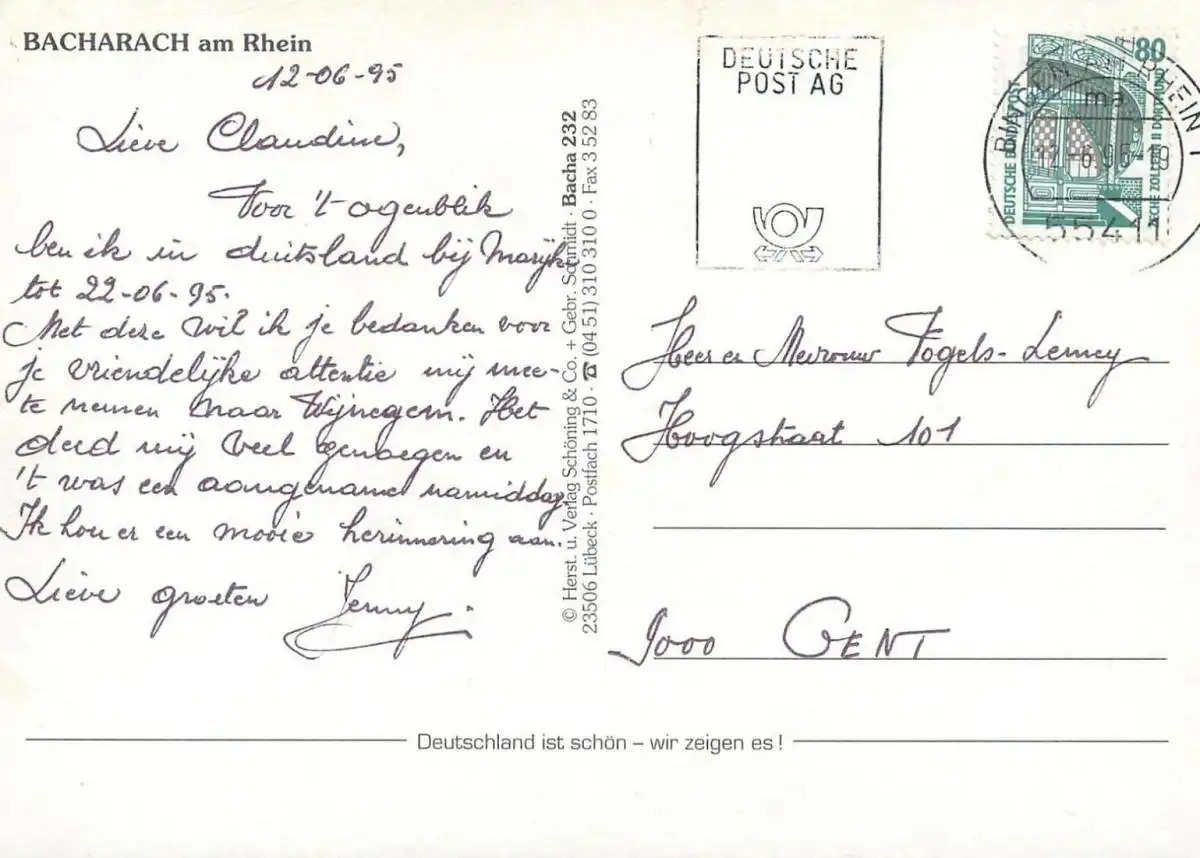 BACHARACH am Rhein
12-06-95
Lieve Claudine,
Voor 't ogenblik
ben ik in duitsland bij Marijke
tot 22-06-95.
Met deze wil ik je bedanken voor
je vriendelijke attentie mij mee-
te nemen naar Wijnegem. Het
deed mij veel genoegen en
't was een aangename namiddag.
Ik hou er een mooie herinnering aan.
Lieve groeten Jenny.
© Herst. u. Verlag Schöning & Co. + Gebr. Schmidt · Bacha 232
23506 Lübeck · Postfach 1710 · ☎ (04 51) 310 310 0 · Fax 3 52 83
DEUTSCHE
POST AG
80
DEUTSCHE BUNDESPOST
ZECHE ZOLLERN II DORTMUND
BINGEN A RHEIN 1
ma
12.-6.95-18
55411
Heer en Mevrouw Vogels-
Hoogstraat 101
9000 GENT
Deutschland ist schön – wir zeigen es !